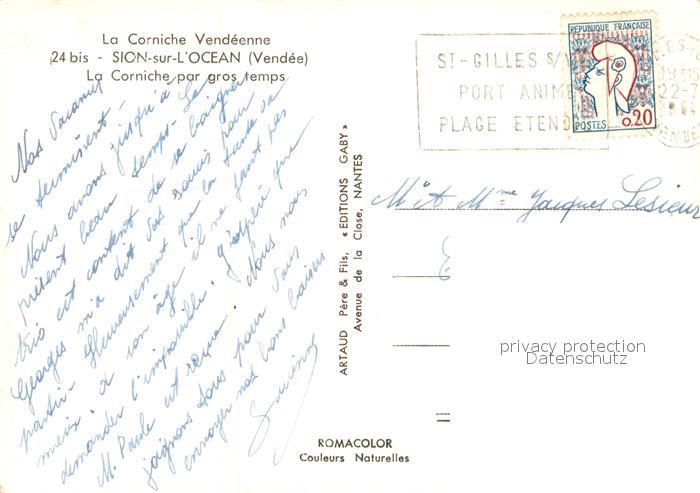 La Corniche Vendéenne
24 bis - SION-sur-L'OCEAN (Vendée)
La Corniche par gros temps
Nos vacances
se terminent.
Nous avons jusqu'à
présent beau temps. Le
trio est content de se baigner
Georges m'a dit vos soucis pour
partir. Heureusement que la tante va
mieux à son âge il ne faut pas
demander l'impossible. J'espère que
M. Paule est reçue. Nous nous
joignons tous pour vous
envoyer nos bons baisers
ARTAUD Père & Fils, « EDITIONS GABY »
Avenue de la Close, NANTES
ROMACOLOR
Couleurs Naturelles
ST-GILLES S/V
PORT ANIME
PLAGE ETEND
REPUBLIQUE FRANÇAISE
POSTES
0,20
22-7
Mr et Mme Jacques Lesieur
privacy protection
Datenschutz